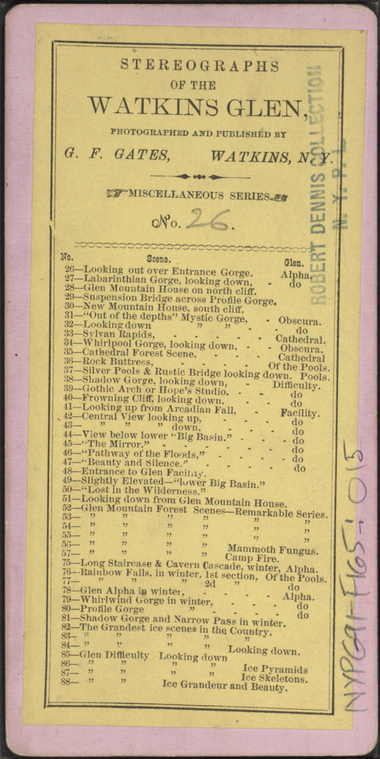 STEREOGRAPHS
OF THE
WATKINS GLEN,
PHOTOGRAPHED AND PUBLISHED BY
G. F. GATES, WATKINS, N.Y.
MISCELLANEOUS SERIES
No. 26.
No. Scene. Glen.
26—Looking out over Entrance Gorge. Alpha.
27—Labarinthian Gorge, looking down, - do
28—Glen Mountain House on north cliff.
29—Suspension Bridge across Profile Gorge,
30—New Mountain House, south cliff.
31—"Out of the depths" Mystic Gorge, - Obscura.
32—Looking down " " - - do
33—Sylvan Rapids, - - - - Cathedral.
34—Whirlpool Gorge, looking down, - - Obscura.
35—Cathedral Forest Scene, - - - Cathedral
36—Rock Buttress, - - - - Of the Pools.
37—Silver Pools & Rustic Bridge looking down. Pools.
38—Shadow Gorge, looking down, Difficulty.
39—Gothic Arch or Hope's Studio, - - do
40—Frowning Cliff, looking down, - - do
41—Looking up from Arcadian Fall, - Facility.
42—Central View looking up, - - - do
43— " " " down. - - - do
44—View below lower "Big Basin." - - do
45—"The Mirror." - - - - - do
46—"Pathway of the Floods," - - - do
47—"Beauty and Silence." - - - - do
48—Entrance to Glen Facility.
49—Slightly Elevated—"lower Big Basin."
50—"Lost in the Wilderness."
51—Looking down from Glen Mountain House.
52—Glen Mountain Forest Scenes—Remarkable Series.
53— " " " " " "
54— " " " " " "
55— " " " " " "
56— " " " " Mammoth Fungus.
57— " " " " Camp Fire.
75—Long Staircase & Cavern Cascade, winter, Alpha.
76—Rainbow Falls, in winter, 1st section, Of the Pools.
77— " " " 2d " do
78—Glen Alpha in winter, - - - - Alpha.
79—Whirlwind Gorge in winter, - - - do
80—Profile Gorge " - - - do
81—Shadow Gorge and Narrow Pass in winter.
82—The Grandest ice scenes in the Country.
83— " " " "
84— " " " " Looking down.
85—Glen Difficulty Looking down
86— " " " " Ice Pyramids
87— " " " " Ice Skeletons.
88— " " Ice Grandeur and Beauty.
ROBERT DENNIS COLLECTION
N. Y. P. L.
NYPG91-F165:015